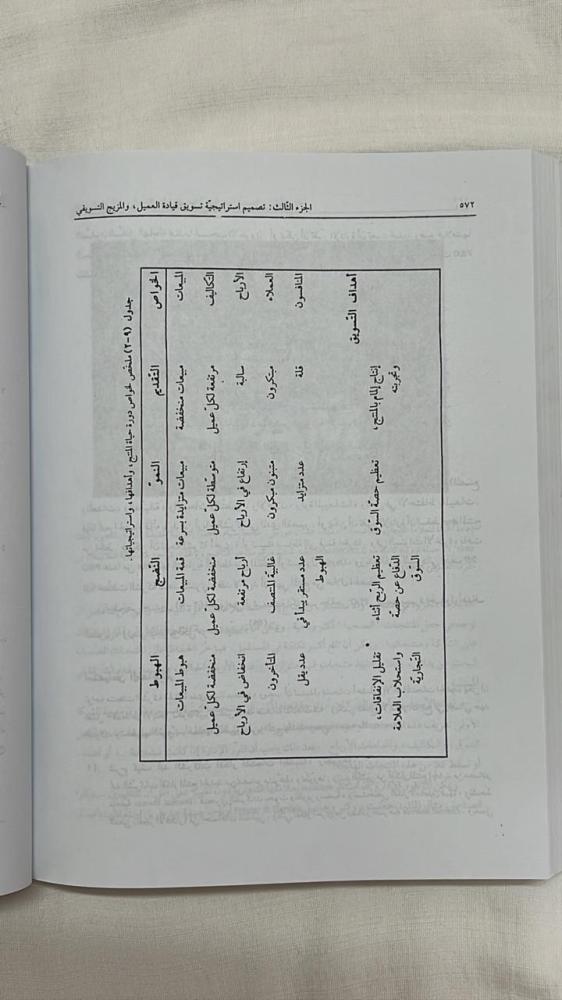 ٥٧٢
الجزء الثالث: تصميم استراتيجيّة تسويق قيادة العميل، والمزيج التسويقي
جدول (٩-٢) ملخّص لخواص دورة حياة المنتج، وأهدافها، واستراتيجياتها.
الخواص التّقديم النموّ النّضج الهبوط
المبيعات مبيعات منخفضة مبيعات متزايدة بسرعة قمّة المبيعات هبوط المبيعات
التّكاليف مرتفعة لكلّ عميل متوسّطة لكلّ عميل منخفضة لكلّ عميل منخفضة لكلّ عميل
الأرباح سالبة إرتفاع في الأرباح أرباح مرتفعة انخفاض في الأرباح
العملاء مبتكرون متبنون مبكرون غالبيّة المنتصف المتأخرون
المنافسون قلة عدد متزايد عدد مستقر يبدأ في عدد يقل
الهبوط
أهداف التّسويق
إنتاج إلمام بالمنتج، تعظيم حصّة السّوق تعظيم الرّبح أثناء تقليل الإنفاقات،
وتجربته الدّفاع عن حصّة واستحلاب العلامة
السّوق التّجاريّة